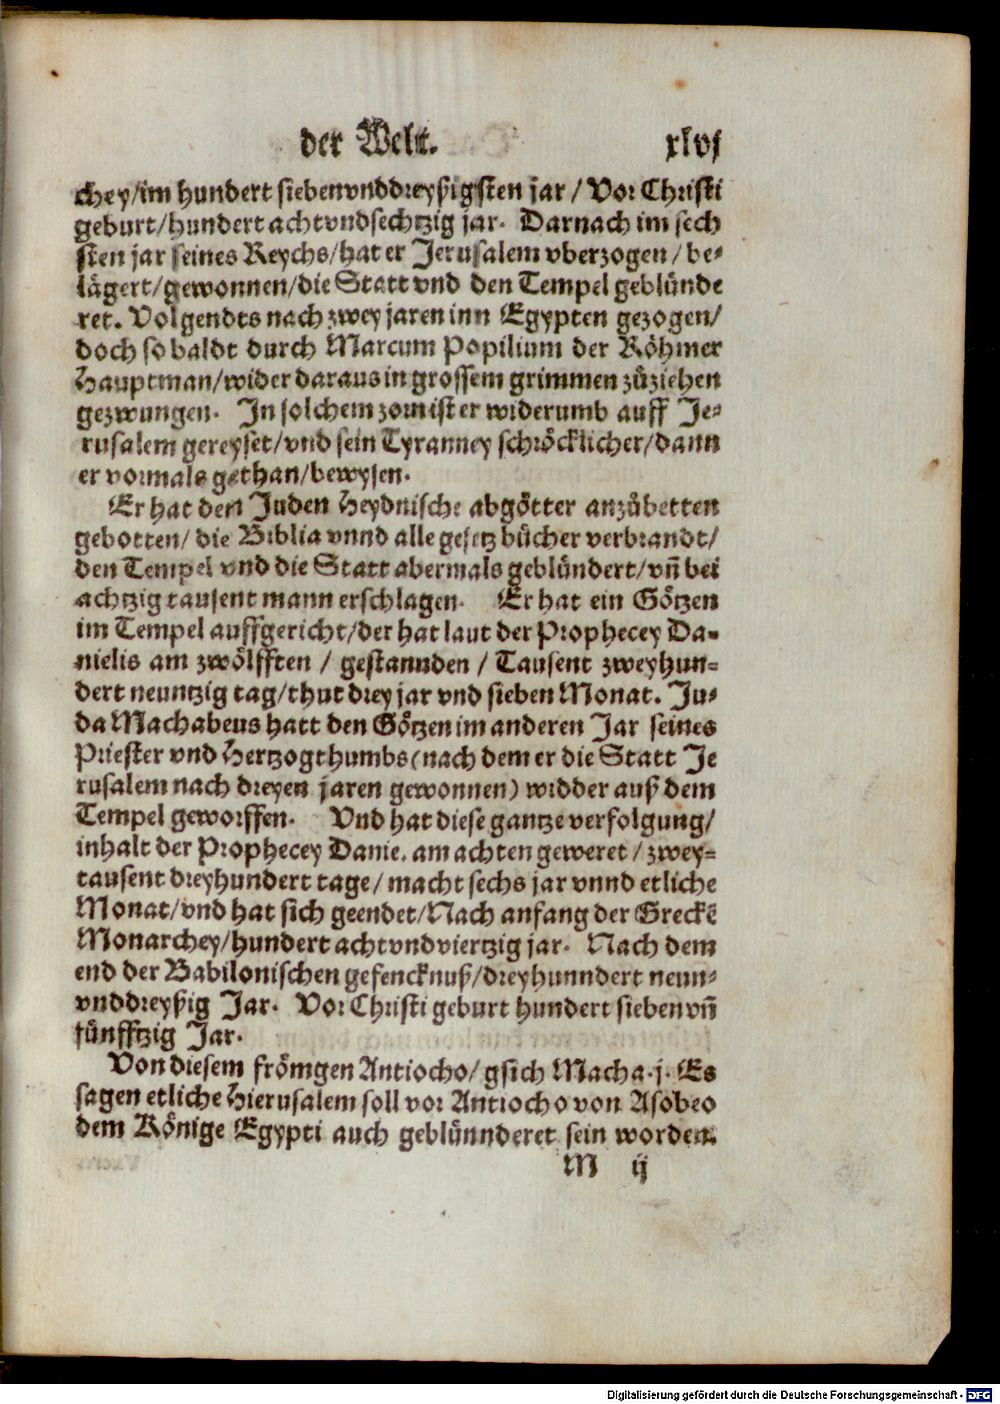 der Welt. xlvj
chey/im hundert siebenvnddreyßigsten jar / Vor Christi
geburt/hundert achtvndsechtzig jar. Darnach im sech
sten jar seines Reychs/hat er Jerusalem vberzogen / be-
lägert/gewonnen/die Statt vnd den Tempel geblünde
ret. Volgendts nach zwey jaren inn Egypten gezogen/
doch so baldt durch Marcum Popilium der Röhmer
Hauptman/wider daraus in grossem grimmen zůziehen
gezwungen. In solchem zorn ist er widerumb auff Je-
rusalem gereyset/vnd sein Tyranney schröcklicher/dann
er vormals gethan/beweysen.
Er hat den Juden Heydnische abgötter anzůbetten
gebotten/ die Biblia vnnd alle gesetz bücher verbrandt/
den Tempel vnd die Statt abermals geblündert/vñ bei
achtzig tausent mann erschlagen. Er hat ein Götzen
im Tempel auffgericht/der hat laut der Prophecey Da-
nielis am zwölfften / gestannden / Tausent zweyhun-
dert neuntzig tag/thut drey jar vnd sieben Monat. Ju-
da Machabeus hatt den Götzen im anderen Jar seines
Priester vnd Hertzogthumbs (nach dem er die Statt Je
rusalem nach dreyen jaren gewonnen) widder auß dem
Tempel geworffen. Vnd hat diese gantze verfolgung/
inhalt der Prophecey Danie. am achten geweret / zwey-
tausent dreyhundert tage/ macht sechs jar vnnd etliche
Monat/vnd hat sich geendet/Nach anfang der Greckē
Monarchey/hundert achtvndviertzig jar. Nach dem
end der Babilonischen gefencknuß/dreyhunndert neun-
vnddreyßig Jar. Vor Christi geburt hundert sieben vñ
fünfftzig Jar.
Von diesem frömgen Antiocho/ gsich Macha.j. Es
sagen etliche Hierusalem soll vor Antiocho von Asobeo
dem Könige Egypti auch geblünnderet sein worden.
M ij
Digitalisierung gefördert durch die Deutsche Forschungsgemeinschaft - DFG